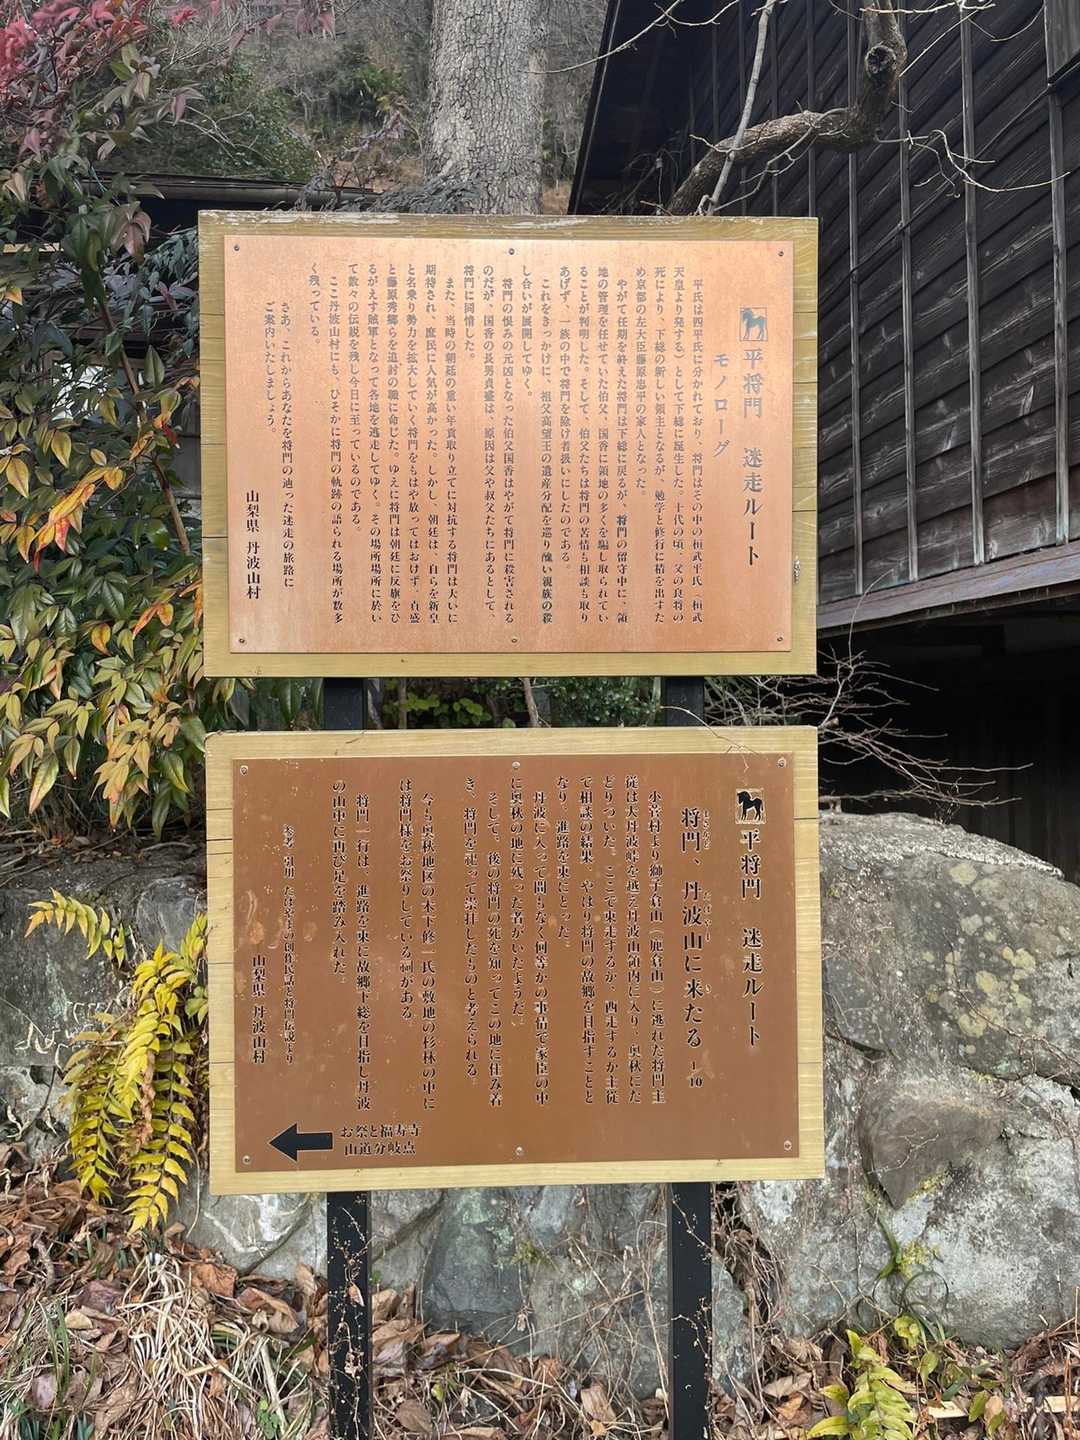 平将門 迷走ルート
モノローグ
平氏は四平氏に分かれており、将門はその中の桓武平氏(桓武
天皇より発する)として下総に誕生した。十代の頃、父の良将の
死により、下総の新しい領主となるが、勉学と修行に精を出すた
め京都の左大臣藤原忠平の家人となった。
やがて任期を終えた将門は下総に戻るが、将門の留守中に、領
地の管理を任せていた伯父、国香に領地の多くを騙し取られてい
ることが判明した。そして、伯父たちは将門の苦情も相談も取り
あげず、一族の中で将門を除け者扱いにしたのである。
これをきっかけに、祖父高望王の遺産分配を巡り醜い親族の殺
し合いが展開してゆく。
将門の恨みの元凶となった伯父国香はやがて将門に殺害される
のだが、国香の長男貞盛は、原因は父や叔父たちにあるとして、
将門に同情した。
また、当時の朝廷の重い年貢取り立てに対抗する将門は大いに
期待され、庶民に人気が高かった。しかし、朝廷は、自らを新皇
と名乗り勢力を拡大していく将門をもはや放ってはおけず、貞盛
と藤原秀郷らを追討の職に命じた。ゆえに将門は朝廷に反旗をひ
るがえす賊軍となって各地を逃走してゆく。その場所場所に於い
て数々の伝説を残し今日に至っているのである。
ここ丹波山村にも、ひそかに将門の軌跡の語られる場所が数多
く残っている。
さあ、これからあなたを将門の辿った迷走の旅路に
ご案内いたしましょう。
山梨県 丹波山村
平将門 迷走ルート
将門、丹波山に来たる 1-10
小菅村より獅子倉山(鹿倉山)に逃れた将門主
従は大丹波峠を越え丹波山領内に入り、奥秋にた
どりついた。ここで東走するか、西走するか主従
で相談の結果、やはり将門の故郷を目指すことと
なり、進路を東にとった。
丹波に入って間もなく何等かの事情で家臣の中
に奥秋の地に残った者がいたようだ。
そして、後の将門の死を知ってこの地に住み着
き、将門を祀って崇拝したものと考えられる。
今も奥秋地区の木下修一氏の敷地の杉林の中に
は将門様をお祭りしている祠がある。
将門一行は、進路を東に故郷下総を目指し丹波
の山中に再び足を踏み入れた。
参考、引用 たばやまの創作民話と将門伝説より
山梨県 丹波山村
お祭と福寿寺
山道分岐点